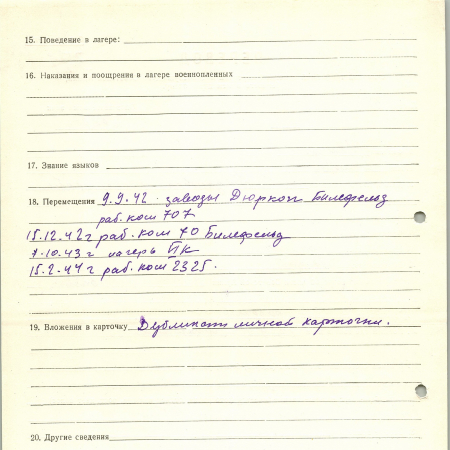 15. Поведение в лагере:
16. Наказания и поощрения в лагере военнопленных
17. Знание языков
18. Перемещения 9.9.42 заводы Дюркоп Билефельд
раб. ком 707
15.12.42 г раб. ком 70 Билефельд
7.10.43 г лагерь ПК
15.2.44 г раб. ком 2325.
19. Вложения в карточку Дубликат личной карточки.
20. Другие сведения